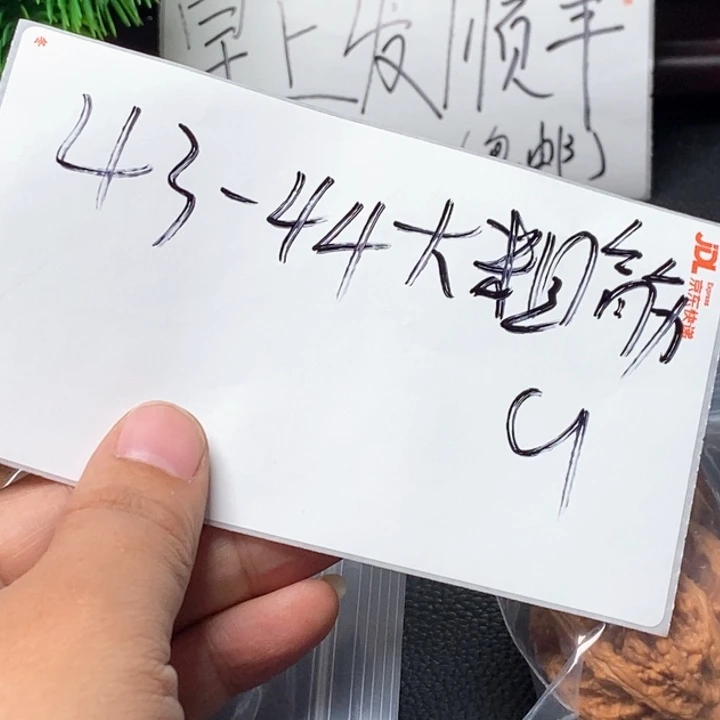 早上发顺丰
(包邮)
43-44大粗筋
9
JDL
Express
京东快递